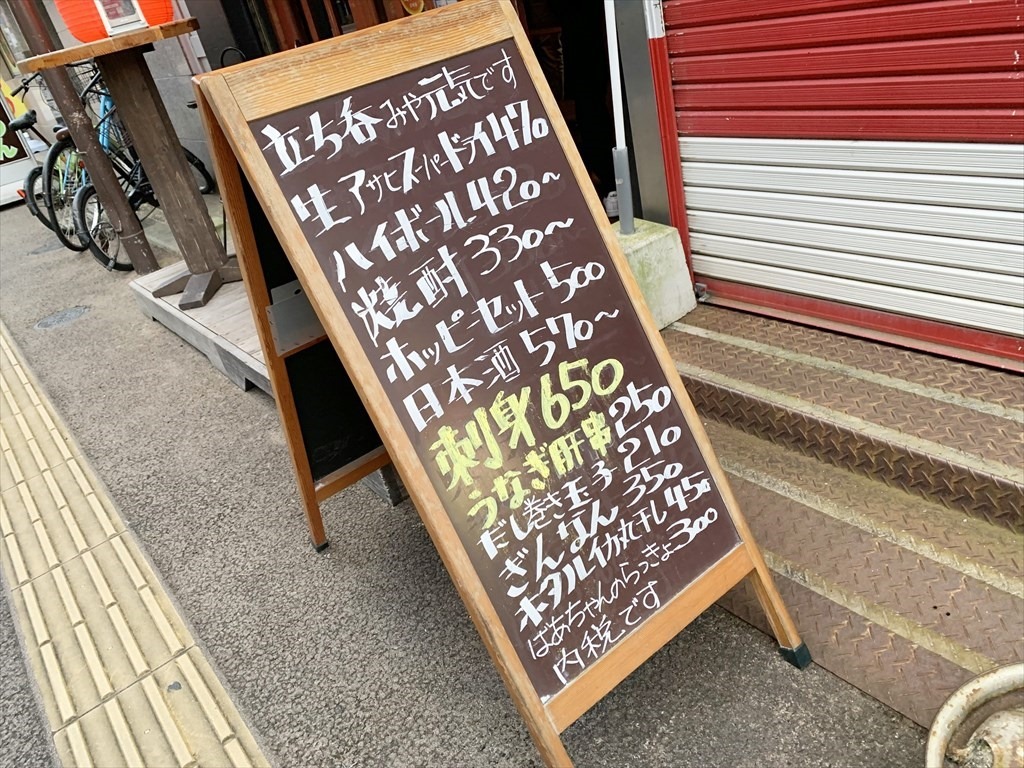 立ち呑みや元気です
生アサヒスーパードライ470
ハイボール420~
焼酎330~
ホッピーセット500
日本酒570~
刺身650
うなぎ肝串250
だし巻き玉子210
ぎんなん350
ホタルイカ丸干し450
ばあちゃんのらっきょ300
内税です